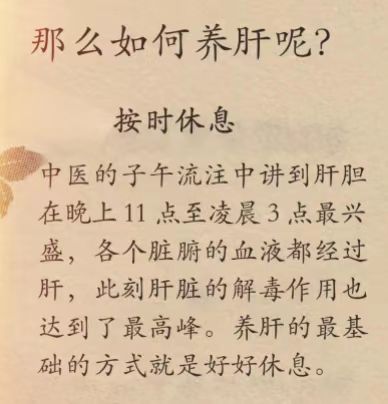 那么如何养肝呢?
按时休息
中医的子午流注中讲到肝胆
在晚上11点至凌晨3点最兴
盛，各个脏腑的血液都经过
肝，此刻肝脏的解毒作用也
达到了最高峰。养肝的最基
础的方式就是好好休息。